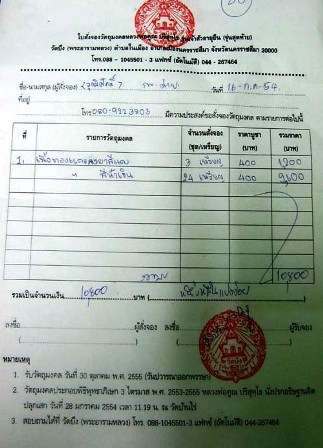 ใบสั่งจองวัตถุมงคลหลวงพ่อคูณ ปริสุทโธ รุ่น
วัดบึง (พระอารามหลวง) ตำบลในเมือง อำเภอเมืองนครราชสีมา จังหวัดนครราชสีมา 30000
โทร.088 - 1045501 - 3 แฟกซ์ (อัตโนมัติ) 044 - 267464
ชื่อ-นามสกุล (ผู้สั่งจอง) วันที่ 16-ก.ค-54
ที่อยู่
โทร มีความประสงค์ขอสั่งจองวัตถุมงคล ตามรายการต่อไปนี้
ที่ รายการวัตถุมงคล จำนวนสั่งจอง (ชุด/เหรียญ) ราคาบูชา (บาท) รวมราคา (บาท)
1. 3 เหรียญ 400 1,200
" 24 เหรียญ 400 9,600
รวม 10800
รวมเป็นจำนวนเงิน 10800 บาท (
ลงชื่อ ผู้สั่งจอง ลงชื่อ ผู้รับจอง
หมายเหตุ
1. รับวัตถุมงคล วันที่ 30 ตุลาคม พ.ศ. 2555 (วันปวารณาออกพรรษา)
2. วัตถุมงคลประกอบพิธีพุทธาภิเษก 3 ไตรมาส พ.ศ. 2553-2555 หลวงพ่อคูณ ปริสุทโธ นั่งปรกอธิษฐานจิต
ปลุกเสก วันที่ 28 มกราคม 2554 เวลา 11.19 น. ณ วัดบ้านไร่
3. สอบถามได้ที่ วัดบึง (พระอารามหลวง) โทร. 088-1045501-3 แฟกซ์ (อัตโนมัติ) 044-267464